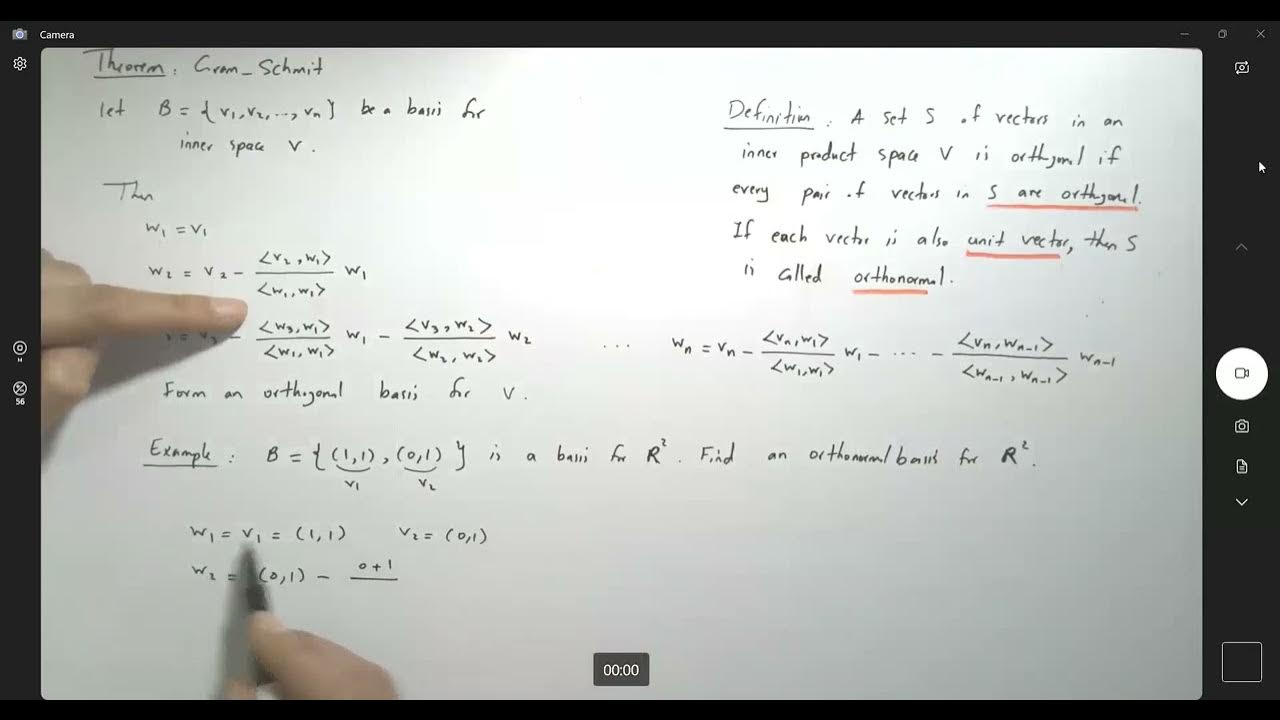 Camera
Theorem : Gram_Schmit
let B = { v₁, v₂, ..., vₙ } be a basis for
inner space V .
Then
w₁ = v₁
w₂ = v₂ - <v₂, w₁> / <w₁, w₁> w₁
= v₃ - <w₃, w₁> / <w₁, w₁> w₁ - <v₃, w₂> / <w₂, w₂> w₂ ... wₙ = vₙ - <vₙ, w₁> / <w₁, w₁> w₁ - ... - <vₙ, wₙ₋₁> / <wₙ₋₁, wₙ₋₁> wₙ₋₁
Form an orthogonal basis for V .
Definition : A set S of vectors in an
inner product space V is orthogonal if
every pair of vectors in S are orthogonal.
If each vector is also unit vector, then S
is called orthonormal.
Example : B = { (1,1) , (0,1) } is a basis for R² . Find an orthonormal basis for R² .
v₁ v₂
w₁ = v₁ = (1,1) v₂ = (0,1)
w₂ = (0,1) - 0+1
00:00